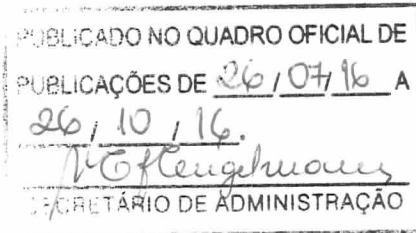 PUBLICADO NO QUADRO OFICIAL DE
PUBLICAÇÕES DE 26/07/16 A
26/10/16.
SECRETÁRIO DE ADMINISTRAÇÃO